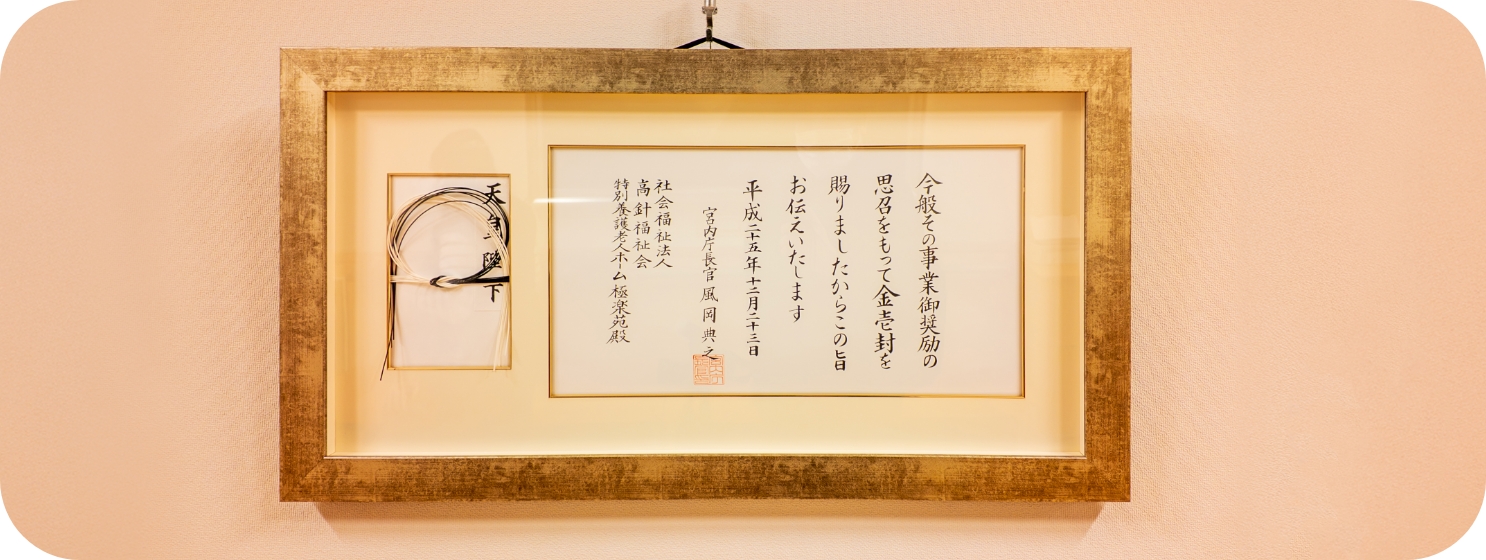 今般その事業御奨励の
思召をもって金壱封を
賜りましたからこの旨
お伝えいたします
平成二十五年十二月二十三日
宮内庁長官 風岡典之
社会福祉法人
高針福祉会
特別養護老人ホーム 極楽苑殿
天皇陛下